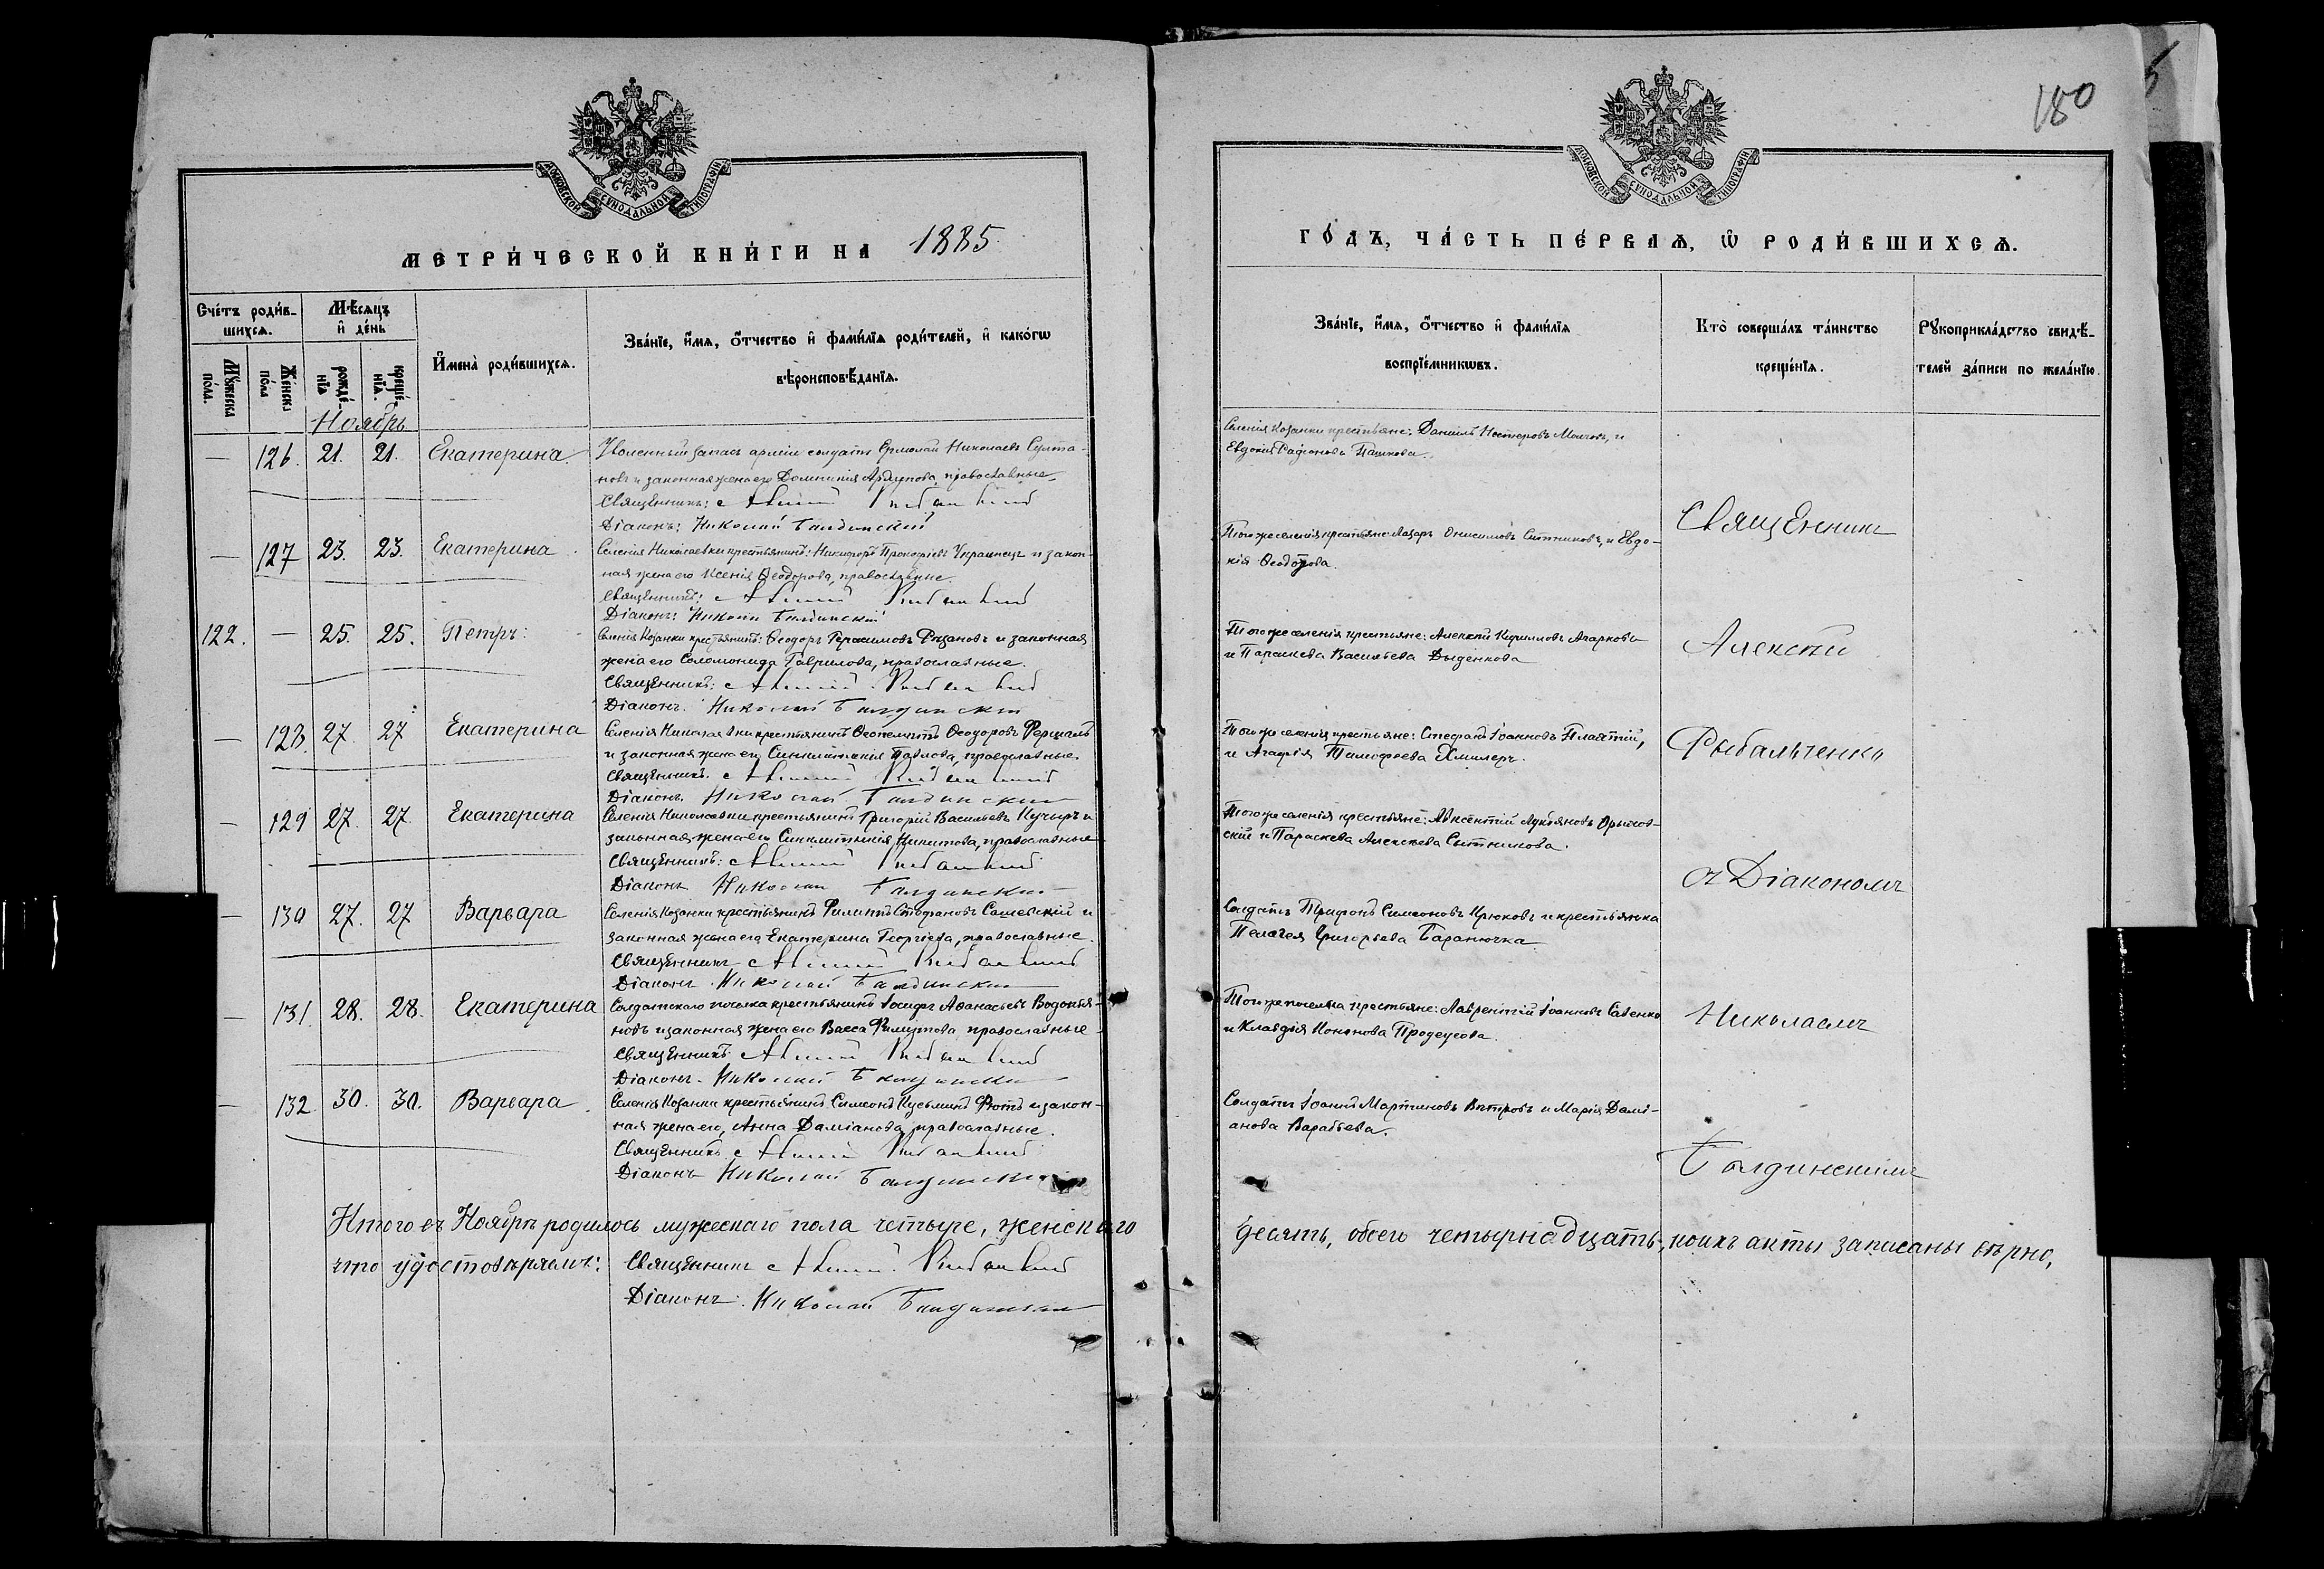 180
МОСКОВСКОЙ СѴНОДАЛЬНОЙ ТИПОГРАФІИ
МЕТРИ́ЧЕСКОЙ КНИ́ГИ НА 1885
Сче́тъ роди́в-
шихсѧ.
Мѣ́сѧцъ
и҆ де́нь
Мꙋ́жеска
по́ла.
Же́нска
по́ла
рожде́-
нїѧ
креще́-
нїѧ.
И҆мена̀ роди́вшихсѧ.
Зва́нїе, и҆́мѧ, ѻ҆́тчество и҆ фами́лїѧ роди́телей, и҆ како́гѡ
вѣроисповѣ́данїѧ.
Ноябрь
— 126. 21. 21. Екатерина.
Уволенный запасъ арміи солдатъ Ермолай Николаевъ Султа-
новъ и законная жена его Домникія православные
Священникъ: Алексѣй Рыбальченко
Діаконъ: Николай Балдинскій
— 127 23. 23. Екатерина.
Селенія Николаевки крестьянинъ: Никифоръ Прокофіевъ Украинецъ и закон-
ная жена его Ксенія Ѳеодорова, православные.
Священникъ: Алексѣй Рыбальченко
Діаконъ: Николай Балдинскій
122. — 25. 25. Петръ:
Селенія Козанки крестьянинъ: Ѳеодоръ Герасимовъ и законная
жена его Соломонида Гаврилова, православные.
Священникъ: Алексѣй Рыбальченко
Діаконъ. Николай Балдинскій
— 128. 27. 27 Екатерина
Селенія Николаевки крестьянинъ Ѳеодоровъ
и законная жена его Синклитикія Павлова, православные.
Священникъ. Алексѣй Рыбальченко
Діаконъ. Николай Балдинскій
— 129 27. 27. Екатерина
Селенія Николаевки крестьянинъ Григорій Васильевъ Кучыръ и
законная жена его Синклитикія Никитова, православные
Священникъ: Алексѣй Рыбальченко
Діаконъ Николай Балдинскій
— 130 27. 27 Варвара
Селенія Козанки крестьянинъ Филиппъ Стефановъ и
законная жена его Екатерина Георгіева, православные.
Священникъ Алексѣй Рыбальченко
Діаконъ. Николай Балдинскій
— 131. 28. 28. Екатерина
Солдатскаго поселка крестьянинъ Іосифъ Аѳанасьевъ Водопья-
новъ и законная жена его Васса Филипова, православные.
Священникъ: Алексѣй Рыбальченко
Діаконъ. Николай Балдинскій
— 132 30. 30. Варвара.
Селенія Козанки крестьянинъ Симеонъ Кузьминъ и закон-
ная жена его, Анна Даміанова, православные.
Священникъ. Алексѣй Рыбальченко
Діаконъ Николай Балдинскій
Итого въ Ноябрѣ родилось мужескаго пола четыре, женскаго
что удостовѣряемъ: Священникъ Алексѣй Рыбальченко
Діаконъ: Николай Балдинскій
МОСКОВСКОЙ СѴНОДАЛЬНОЙ ТИПОГРАФІИ
ГО́ДЪ, ЧА́СТЬ ПЕ́РВАѦ, Ѡ҆ РОДИ́ВШИХСѦ.
Зва́нїе, и҆́мѧ, ѻ҆́тчество и҆ фами́лїѧ
воспрїе́мникѡвъ.
Кто̀ соверша́лъ та́инство
креще́нїѧ.
Рꙋкоприкла́дство свидѣ́-
телей за́писи по жела́нїю.
Селенія Козанки крестьяне: Даніилъ Нестеровъ и
Евдокія Пашкова.
Того же селенія крестьяне: Лазарь Онисимовъ Сытниковъ, и Евдо-
кія Ѳеодорова.
Того же селенія крестьяне: Алексѣй Кириловъ Агарковъ
и Параскева Васильева Дыденкова
Того же селенія крестьяне: Стефанъ Іоанновъ Платтій,
и Агафія Тимофеева Хмилеръ.
Того же селенія крестьяне: Авксентій Лукьяновъ
скій и Параскева Алексѣева Сытникова.
Солдатъ Трифонъ Симеоновъ Крюковъ и крестьянка
Пелагея Григорьева Баранючка
Того же поселка крестьяне: Лаврентій Іоанновъ Савенко
и Клавдія Кононова Продеусова.
Солдатъ Іоаннъ Мартиновъ Вѣтровъ и Марія Дамі-
анова Варабьева.
Священникъ
Алексѣй
Рыбальченко
съ Діакономъ
Николаемъ
Балдинскимъ
десять, обоего четырнадцать, коихъ акты записаны вѣрно,